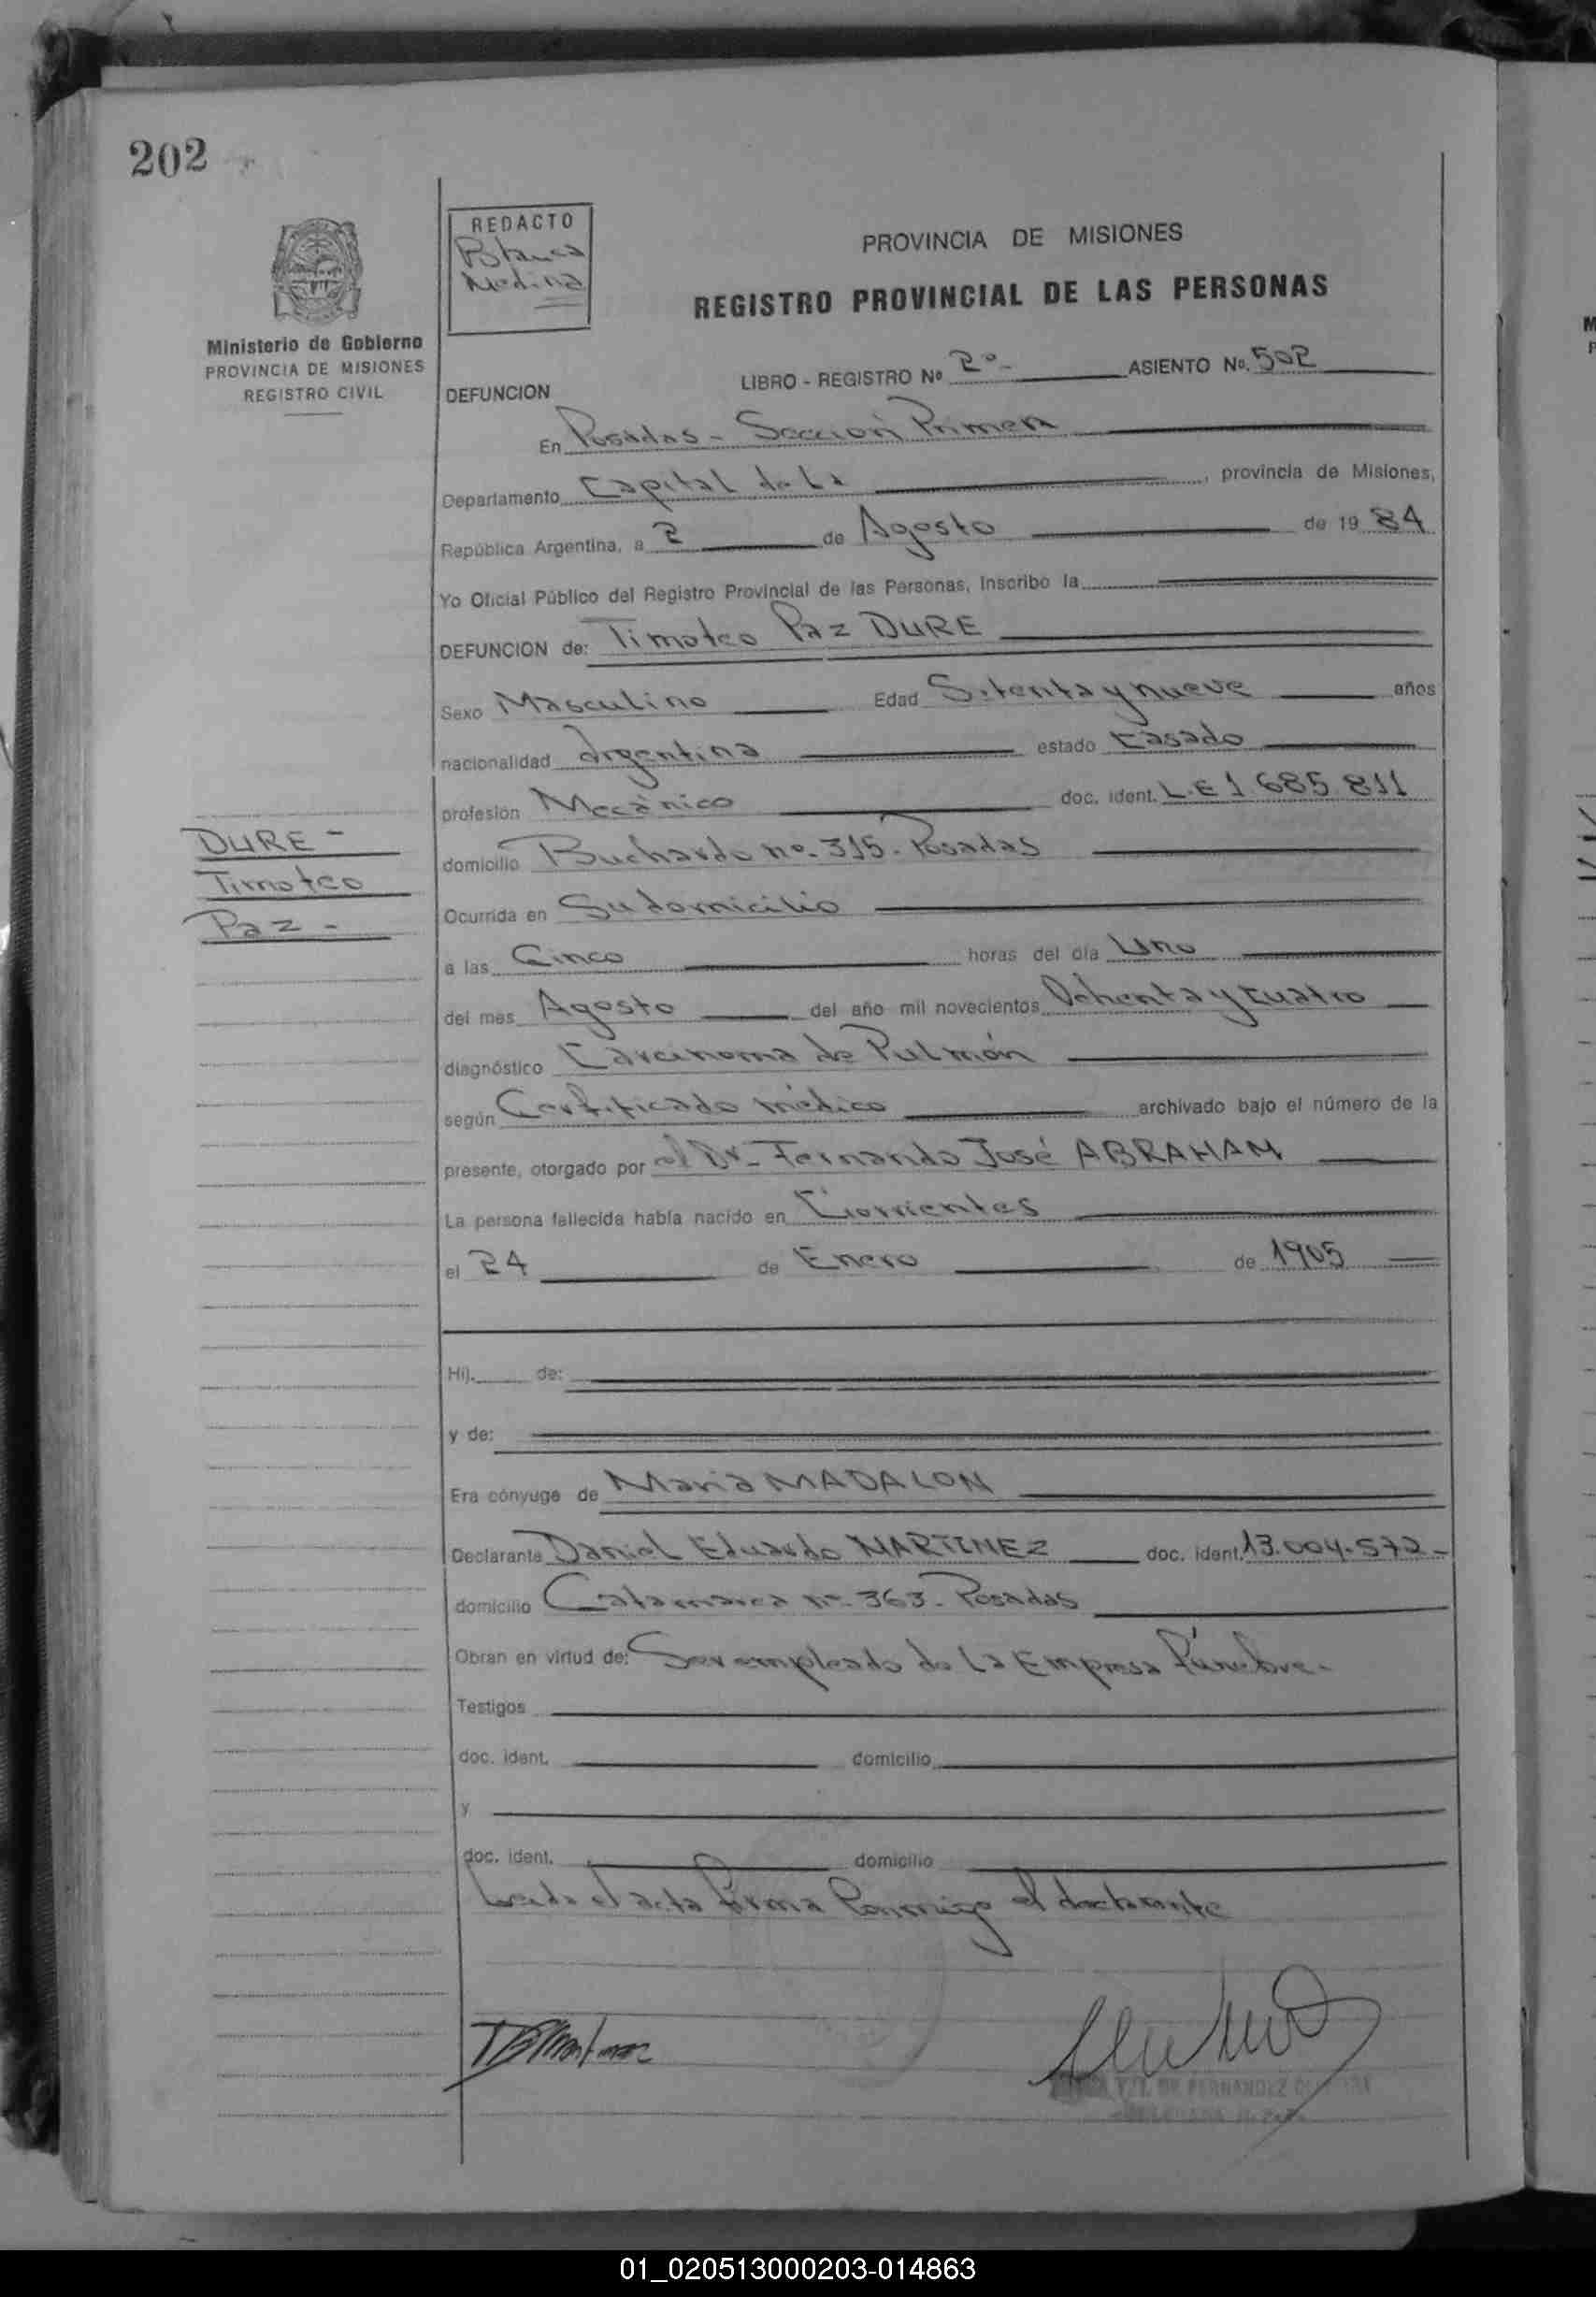 202
REDACTO
Medina
Ministerio de Gobierno
PROVINCIA DE MISIONES
REGISTRO CIVIL
PROVINCIA DE MISIONES
REGISTRO PROVINCIAL DE LAS PERSONAS
DEFUNCION LIBRO - REGISTRO Nº 2º- ASIENTO Nº. 502
En Posadas - Sección Primera
Departamento Capital de La, provincia de Misiones,
República Argentina, a 2 de Agosto de 1984
Yo Oficial Público del Registro Provincial de las Personas, Inscribo la
DEFUNCION de: Timoteo Paz DURE
Sexo Masculino Edad Setenta y nueve años
nacionalidad Argentina estado Casado
profesión Mecánico doc. ident. L.E 1 685.811
DURE -
Timoteo
Paz -
domicilio Buchardo nº. 315. Posadas
Ocurrida en Su domicilio
a las Cinco horas del día Uno
del mes Agosto del año mil novecientos Ochenta y Cuatro
diagnóstico Carcinoma de Pulmón
según Certificado médico archivado bajo el número de la
presente, otorgado por el Dr. Fernando José ABRAHAM
La persona fallecida había nacido en Corrientes
el 24 de Enero de 1905
Hij. de:
y de:
Era cónyuge de Maria MADALON
Declarante Daniel Eduardo MARTINEZ doc. ident. 13.004.572-
domicilio Catamarca nº. 363. Posadas
Obran en virtud de: Ser empleado de La Empresa fúnebre.
Testigos
doc. ident. domicilio
y
doc. ident. domicilio
Leida el acta firma Conmigo el declarante
DE FERNANDEZ
01_020513000203-014863